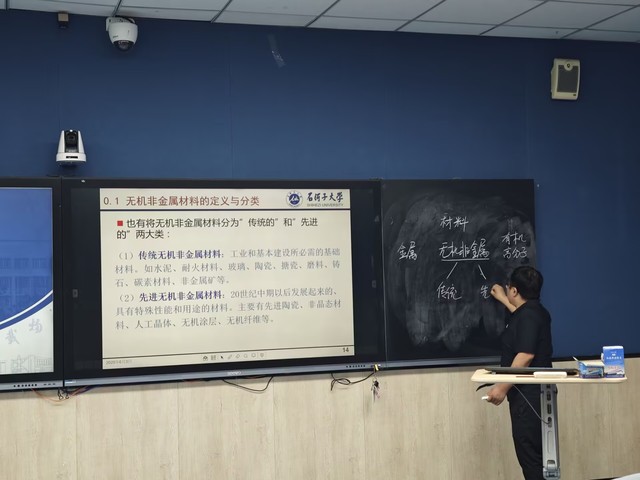 0.1 无机非金属材料的定义与分类
石河子大学
SHIHEZI UNIVERSITY
■ 也有将无机非金属材料分为"传统的"和"先进
的"两大类：
（1）传统无机非金属材料：工业和基本建设所必需的基础
材料。如水泥、耐火材料、玻璃、陶瓷、搪瓷、磨料、铸
石、碳素材料、非金属矿等。
（2）先进无机非金属材料：20世纪中期以后发展起来的、
具有特殊性能和用途的材料。主要有先进陶瓷、非晶态材
料、人工晶体、无机涂层、无机纤维等。
14
材料
金属 无机非金属 有机
高分子
传统